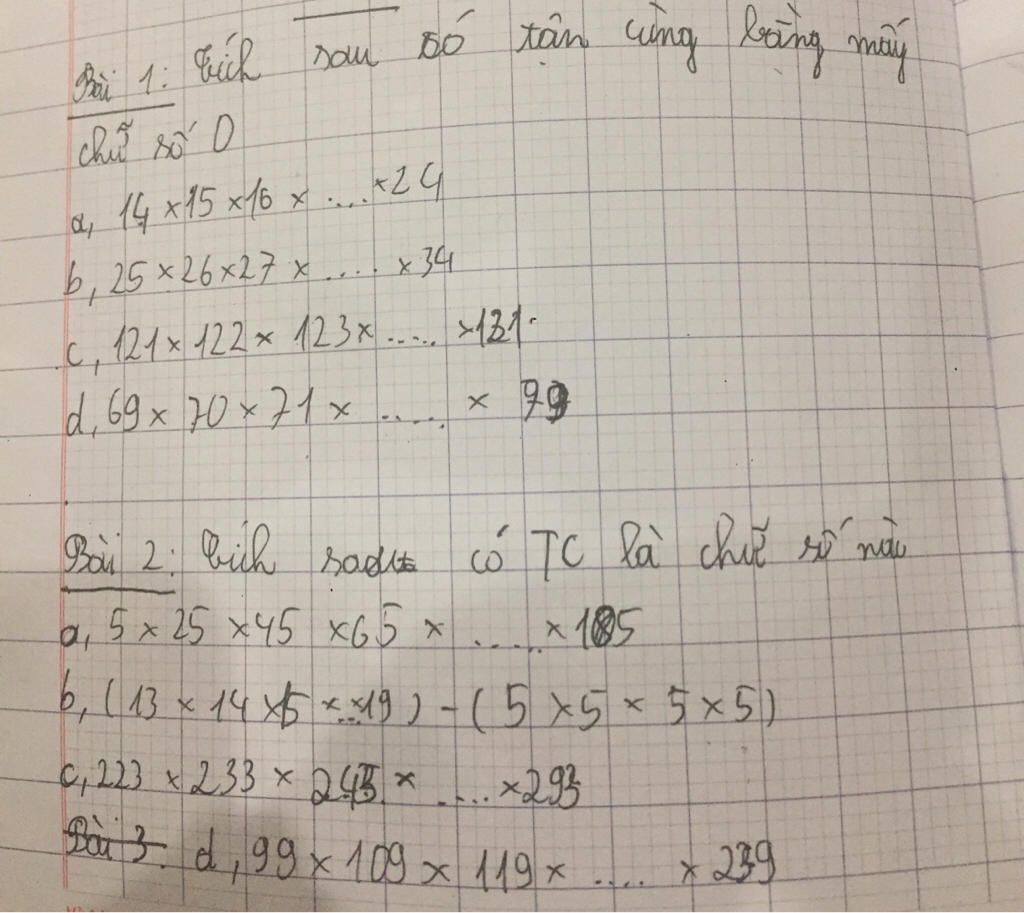 Bài 1: Tích sau có tận cùng bằng mấy
chữ số 0
a, 14 × 15 × 16 × .... × 24
b, 25 × 26 × 27 × .... × 34
c, 121 × 122 × 123 × ..... × 131
d, 69 × 70 × 71 × ..... × 79
Bài 2: Tích sau có TC là chữ số nào
a, 5 × 25 × 45 × 65 × ..... × 185
b, (13 × 14 × 15 × ... × 19) - (5 × 5 × 5 × 5)
c, 223 × 233 × 243 × .... × 293
Bài 3. d, 99 × 109 × 119 × .... × 239